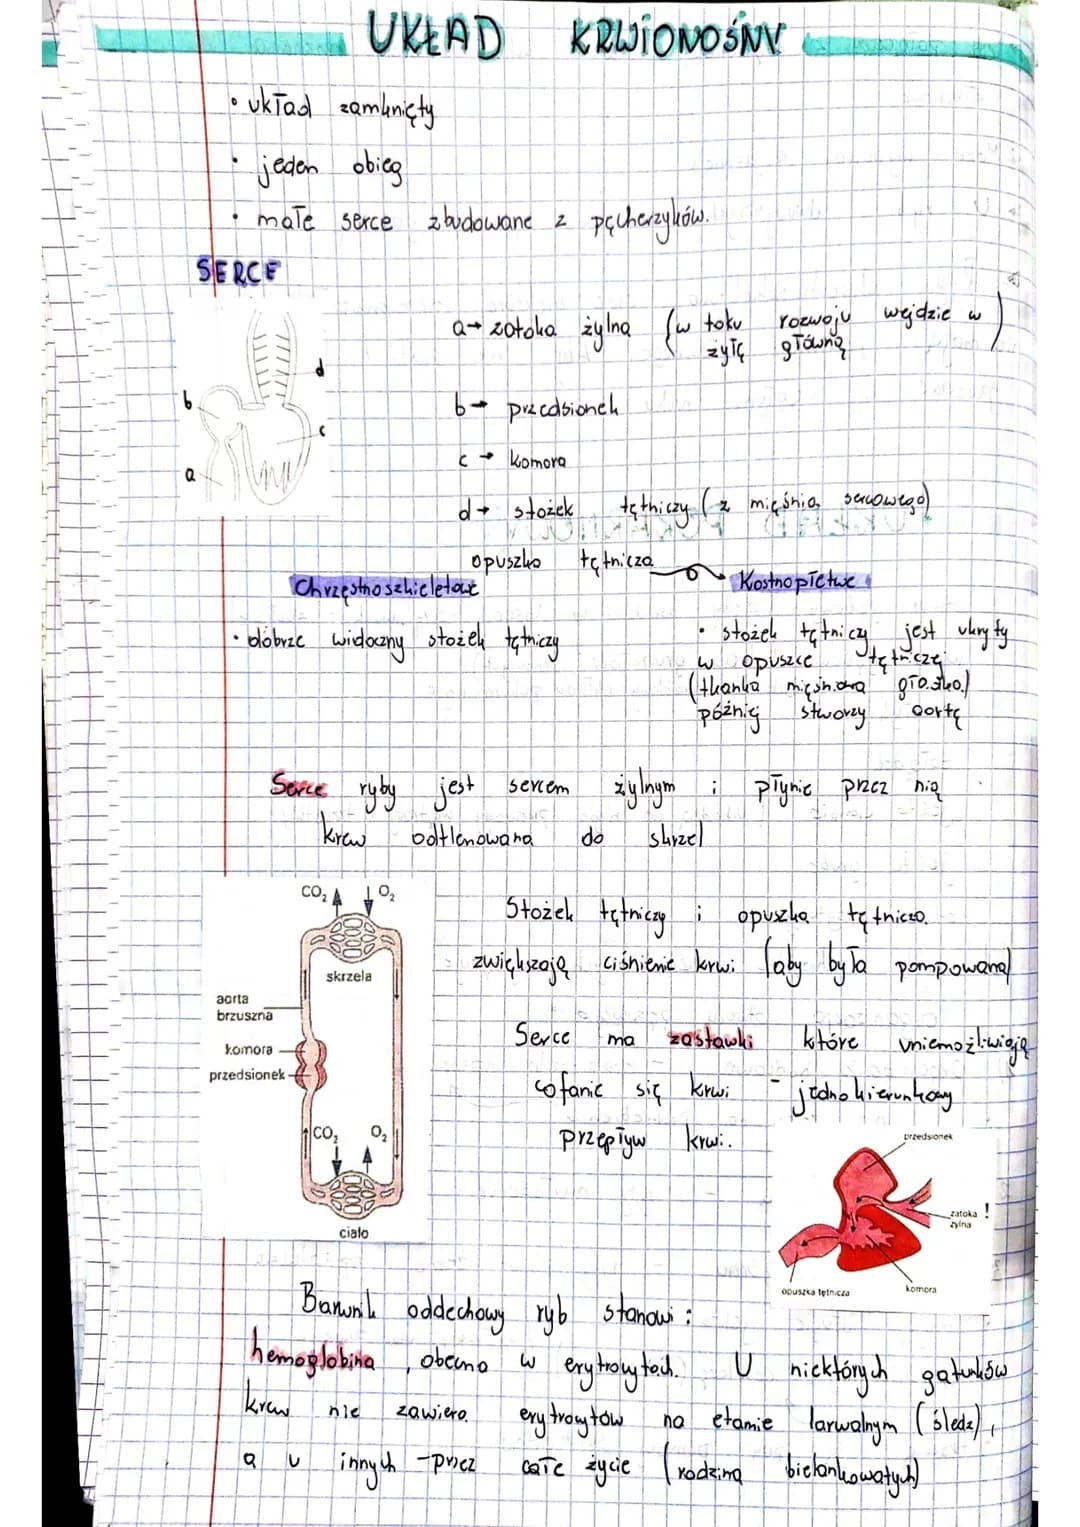 UKŁAD KRWIONOŚNY
• układ zamknięty
• jeden obieg
• małe serce zbudowane z pęcherzyków.
SERCE
a → zatoka żylna (w toku rozwoju wejdzie w żyłę główną)
b → przedsionek
c → komora
d → stożek tętniczy (z mięśnia sercowego)
opuszka tętnicza
d
b
c
a
Chrzęstnoszkieletowe
• dobrze widoczny stożek tętniczy
Kostnopłetwe
• stożek tętniczy jest ukryty
w opuszce tętniczej
(tkanka mięśniowa gładka)
później stworzy aortę
Serce ryby jest sercem żylnym i płynie przez nią
krew odtlenowana do skrzel
CO₂ O₂
skrzela
aorta
brzuszna
komora
przedsionek
CO₂ O₂
ciało
Stożek tętniczy i opuszka tętnicza
zwiększają ciśnienie krwi (aby była pompowana)
Serce ma zastawki które uniemożliwiają
cofanie się krwi - jednokierunkowy
przepływ krwi.
przedsionek
zatoka !
żylna
opuszka tętnicza
komora
Barwnik oddechowy ryb stanowi :
hemoglobina, obecna w erytrocytach. U niektórych gatunków
krew nie zawiera erytrocytów na etamie larwalnym (śledź),
a u innych - przez całe życie (rodzina bielankowatych)